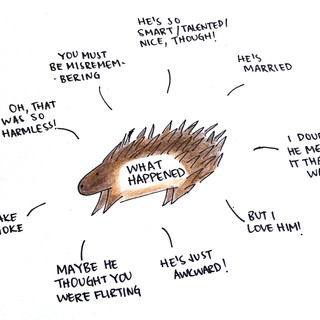 HE'S SO
SMART/TALENTED/
NICE, THOUGH!
YOU MUST
BE MISREMEM-
-BERING
HE'S
MARRIED
OH, THAT
WAS SO
HARMLESS!
WHAT
HAPPENED
I DOU
HE ME
IT THE
W
AKE
OKE
BUT I
LOVE HIM!
MAYBE HE
THOUGHT YOU
WERE FLIRTING
HE'S JUST
AWKWARD!